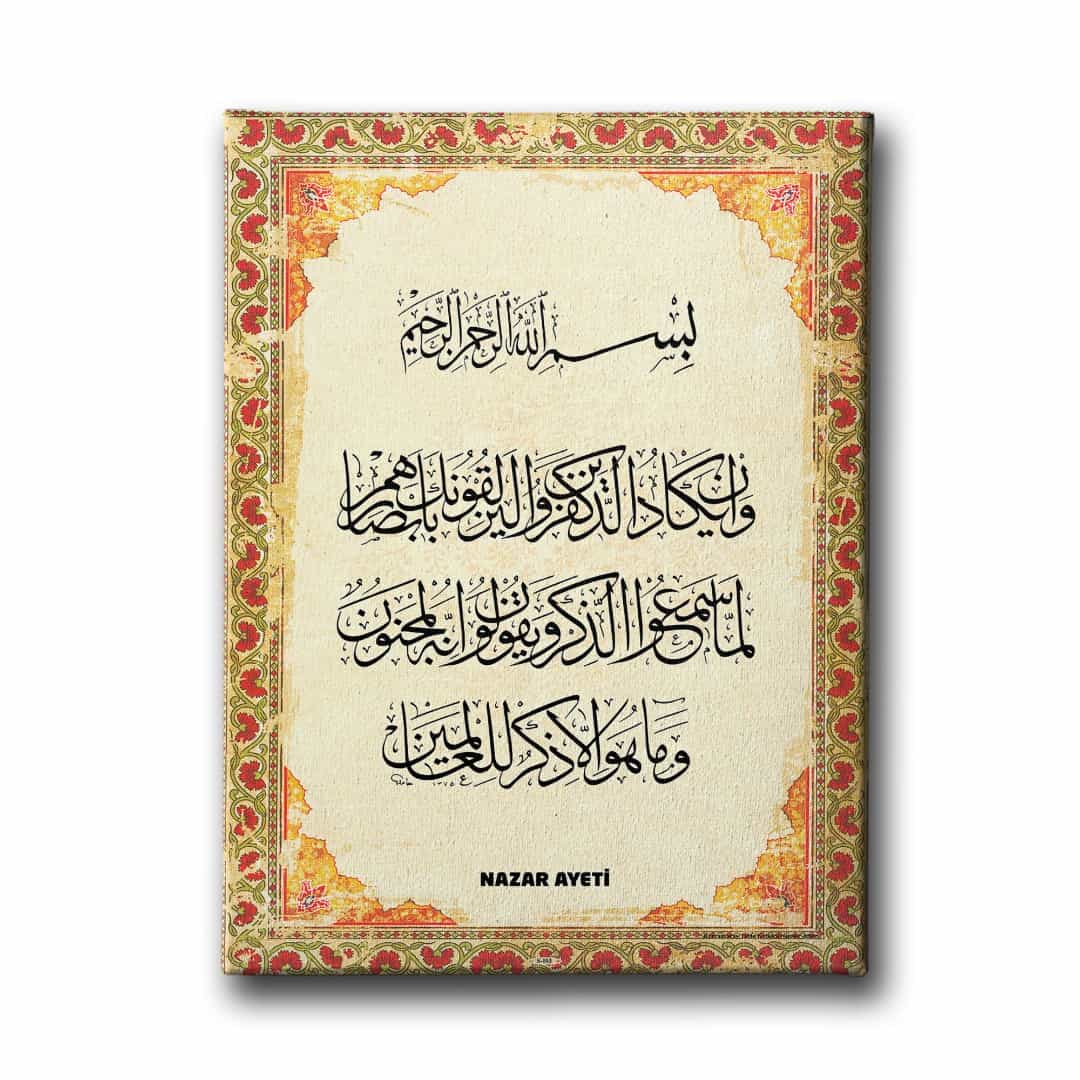 بِسْمِ ٱللَّهِ ٱلرَّحْمَٰنِ ٱلرَّحِيمِ
وَاِنْ يَكَادُ الَّذِينَ كَفَرُوا لَيُزْلِقُونَكَ بِاَبْصَارِهِمْ
لَمَّا سَمِعُوا الذِّكْرَ وَيَقُولُونَ اِنَّهُ لَمَجْنُونٌ
وَمَا هُوَ اِلَّا ذِكْرٌ لِلْعَالَمِينَ
NAZAR AYETİ